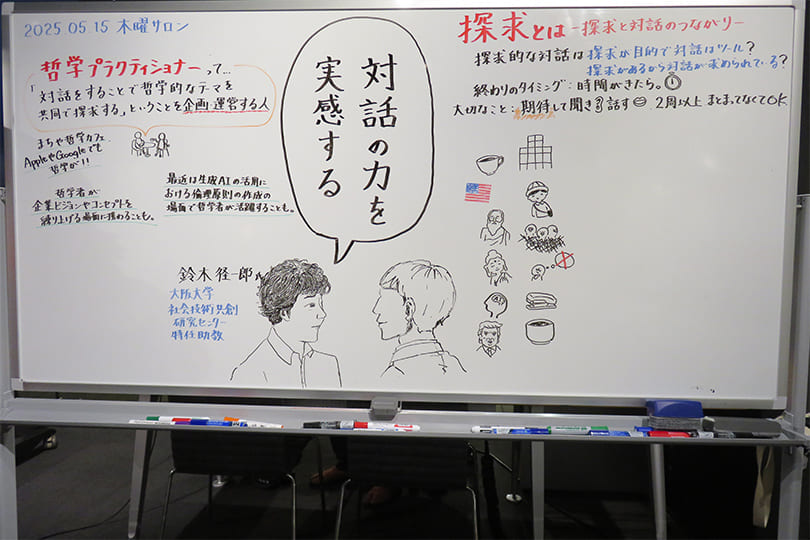 2025 05.15 木曜サロン
哲学プラクティショナーって…
「対話をすることで哲学的なテーマを
共同で探求する」ということを企画・運営する人
まちや哲学カフェ
AppleやGoogleでも
哲学が!!
哲学者が
企業ビジョンやコンセプトを
練り上げる場面に携わることも。
最近は生成AIの活用に
おける倫理原則の作成の
場面で哲学者が活躍することも。
対話の力を
実感する
鈴木径一郎氏
大阪大学
社会技術共創
研究センター
特任助教
探求とは -探求と対話のつながり-
探求的な対話は探求が目的で対話はツール?
探求があるから対話が求められている?
終わりのタイミング:時間がきたら。
大切なこと:期待して聞き 話す 2周以上 まとまってなくてOK